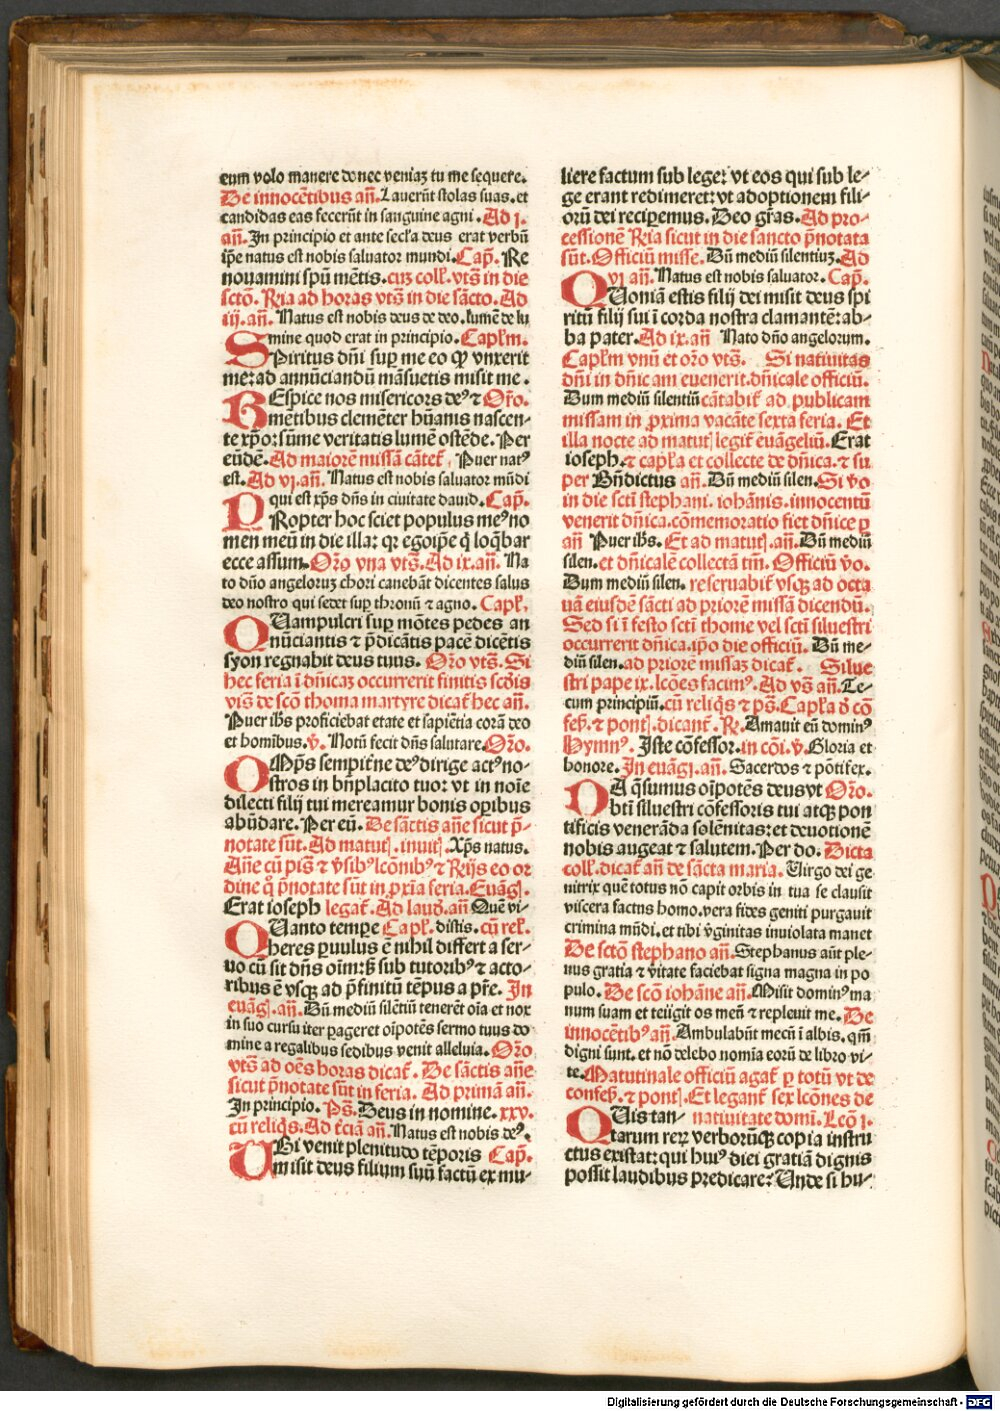 eum volo manere donec veniaʒ tu me sequere.
De innocētibus añ. Lauerūt stolas suas. et
candidas eas fecerūt in sanguine agni. Ad j.
añ. In principio et ante secla deus erat verbū
ip̄e natus est nobis saluator mundi. Cap̄. Re
nouamini spū mētis. cuʒ coll. vts̄ in die
sctō. Rn̄a ad horas vts̄ in die sācto. Ad
iij. añ. Natus est nobis deus de deo. lumē de lu
Smine quod erat in principio. Capl̄m.
Spiritus dñi sup me eo qp vnxerit
me: ad annūciandū māsuetis misit me.
REspice nos misericors deꝰ ⁊ Or̄o.
mētibus clemēter hūanis nascen-
te xp̄o: sūme veritatis lumē ostēde. Per
eūdē. Ad maiorē missā cātet̄, Puer natꝰ
est. Ad vj. añ. Natus est nobis saluator mūdi
qui est xp̄s dñs in ciuitate dauid. Cap̄.
PRopter hoc sciet populus meꝰ no
men meū in die illa: qr egoip̄e q̄ loq̄bar
ecce assum. Or̄o vna vts̄. Ad ix. añ. Na
to dño angeloruʒ chori canebāt dicentes salus
deo nostro qui sedet sup thronū ⁊ agno. Capl̄.
QUampulcri sup mōtes pedes an
nūciantis ⁊ p̄dicātis pacē dicētis
syon regnabit deus tuus. Or̄o vts̄. Si
hec feria ī dñicaʒ occurrerit finitis scd̄is
vis̄ de scō thoma martyre dicat̄ hec añ.
Puer ihs proficiebat etate et sapiētia corā deo
et homībus. v̄. Notū fecit dñs salutare. Or̄o.
OMp̄s sempit̄ne deꝰ dirige actꝰ no-
stros in bn̄placito tuo: vt in noīe
dilecti filij tui mereamur bonis opibus
abūdare. Per eū. De sāctis añe sicut p̄-
notate sūt. Ad matut̄. inuit̄. Xp̄s natus.
Añe cū ps̄ ⁊ v̄sibꝰ lcōnibꝰ ⁊ Rn̄js eo or
dine q̄ p̄notate sūt in pxīa feria. Euāḡ.
Erat ioseph legat̄. Ad laud̄. añ Quē vi-
QUanto tempe Capl̄. distis. cū rel̄.
heres puulus ē nihil differt a ser-
uo cū sit dñs oīm: sꝫ sub tutoribꝰ ⁊ acto-
ribus ē vsqꝫ ad p̄finitū tēpus a pr̄e. In
euāḡ. añ. Dū mediū silētiū tenerēt oīa et nox
in suo cursu iter pageret oīpotēs sermo tuus do
mine a regalibus sedibus venit alleluia. Or̄o
vts̄ ad oēs horas dicat̄. De sāctis añe
sicut p̄notate sūt in feria. Ad primā añ.
In principio. Ps̄. Deus in nomine. xxv.
cū reliq̄s. Ad t̄ciā añ. Natus est nobis deꝰ.
UBi venit plenitudo tēporis Cap̄.
misit deus filium suū factū ex mu-
liere factum sub lege: vt eos qui sub le-
ge erant redimeret: vt adoptionem fili-
orū dei recipemus. Deo grās. Ad pro-
cessionē Rn̄a sicut in die sancto p̄notata
sūt. Officiū misse. Dū mediū silentiuʒ. Ad
vj añ. Natus est nobis saluator. Cap̄.
QUoniā estis filij dei misit deus spi
ritū filij sui ī corda nostra clamantē: ab-
ba pater. Ad ix. añ Nato dño angelorum.
Capl̄m vnū et or̄o vts̄. Si natiuitas
dñi in dñicam euenerit. dñicale officiū.
Dum mediū silentiū cātabit̄ ad publicam
missam in pxima vacāte sexta feria. Et
illa nocte ad matut̄ legit̄ euāgeliū. Erat
ioseph. ⁊ capl̄a et collecte de dñica. ⁊ su
per Bn̄dictus añ. Dū mediū silen. Si vo
in die sctī stephani. iohānis. innocentū
venerit dñica. cōmemoratio fiet dñice p
añ Puer ihs. Et ad matut̄. añ. Dū mediū
silen. et dñicale collectā tm̄. Officiū vo.
Dum mediū silen. reseruabit̄ vsqꝫ ad octa
uā eiusdē sācti ad priorē missā dicendū.
Sed si ī festo sctī thome vel sctī siluestri
occurrerit dñica. ip̄o die officiū. Dū me-
diū silen. ad priorē missaʒ dicat̄. Silue
stri pape ix. lcōes facimꝰ. Ad vs̄ añ. Te-
cum principiū. cū reliq̄s ⁊ ps̄. Capl̄a d̄ cō
fes̄. ⁊ pont̄. dicant̄. R̄. Amauit eū dominꝰ
Hymnꝰ. Iste cōfessor. in cōi. v̄. Gloria et
honore. In euāḡ. añ. Sacerdos ⁊ pōtifex.
DA q̄sumus oīpotēs deus vt Or̄o.
btī siluestri cōfessoris tui atqꝫ pon
tificis venerāda solēnitas: et deuotionē
nobis augeat ⁊ salutem. Per do. Dicta
coll̄. dicat̄ añ de sācta maria. Uirgo dei ge
nitrix quē totus nō capit orbis in tua se clausit
viscera factus homo. vera fides geniti purgauit
crimina mūdi. et tibi v̄ginitas inuiolata manet
De sctō stephano añ. Stephanus aūt ple-
nus gratia ⁊ v̄itate faciebat signa magna in po
pulo. De scō iohāne añ. Misit dominꝰ ma
num suam et tetigit os meū ⁊ repleuit me. De
innocētibꝰ añ. Ambulabūt mecū ī albis. qm̄
digni sunt. et nō delebo nomīa eorū de libro vi-
te. Matutinale officiū agat̄ p totū vt de
confes̄. ⁊ pont̄. Et legant̄ sex lcōnes de
QUis tan- natiuitate domī. Lcō j.
tarum rerꝝ verborūqꝫ copia instru
ctus existat: qui huiꝰ diei gratiā dignis
possit laudibus predicare? Unde si hu-
Digitalisierung gefördert durch die Deutsche Forschungsgemeinschaft - DFG